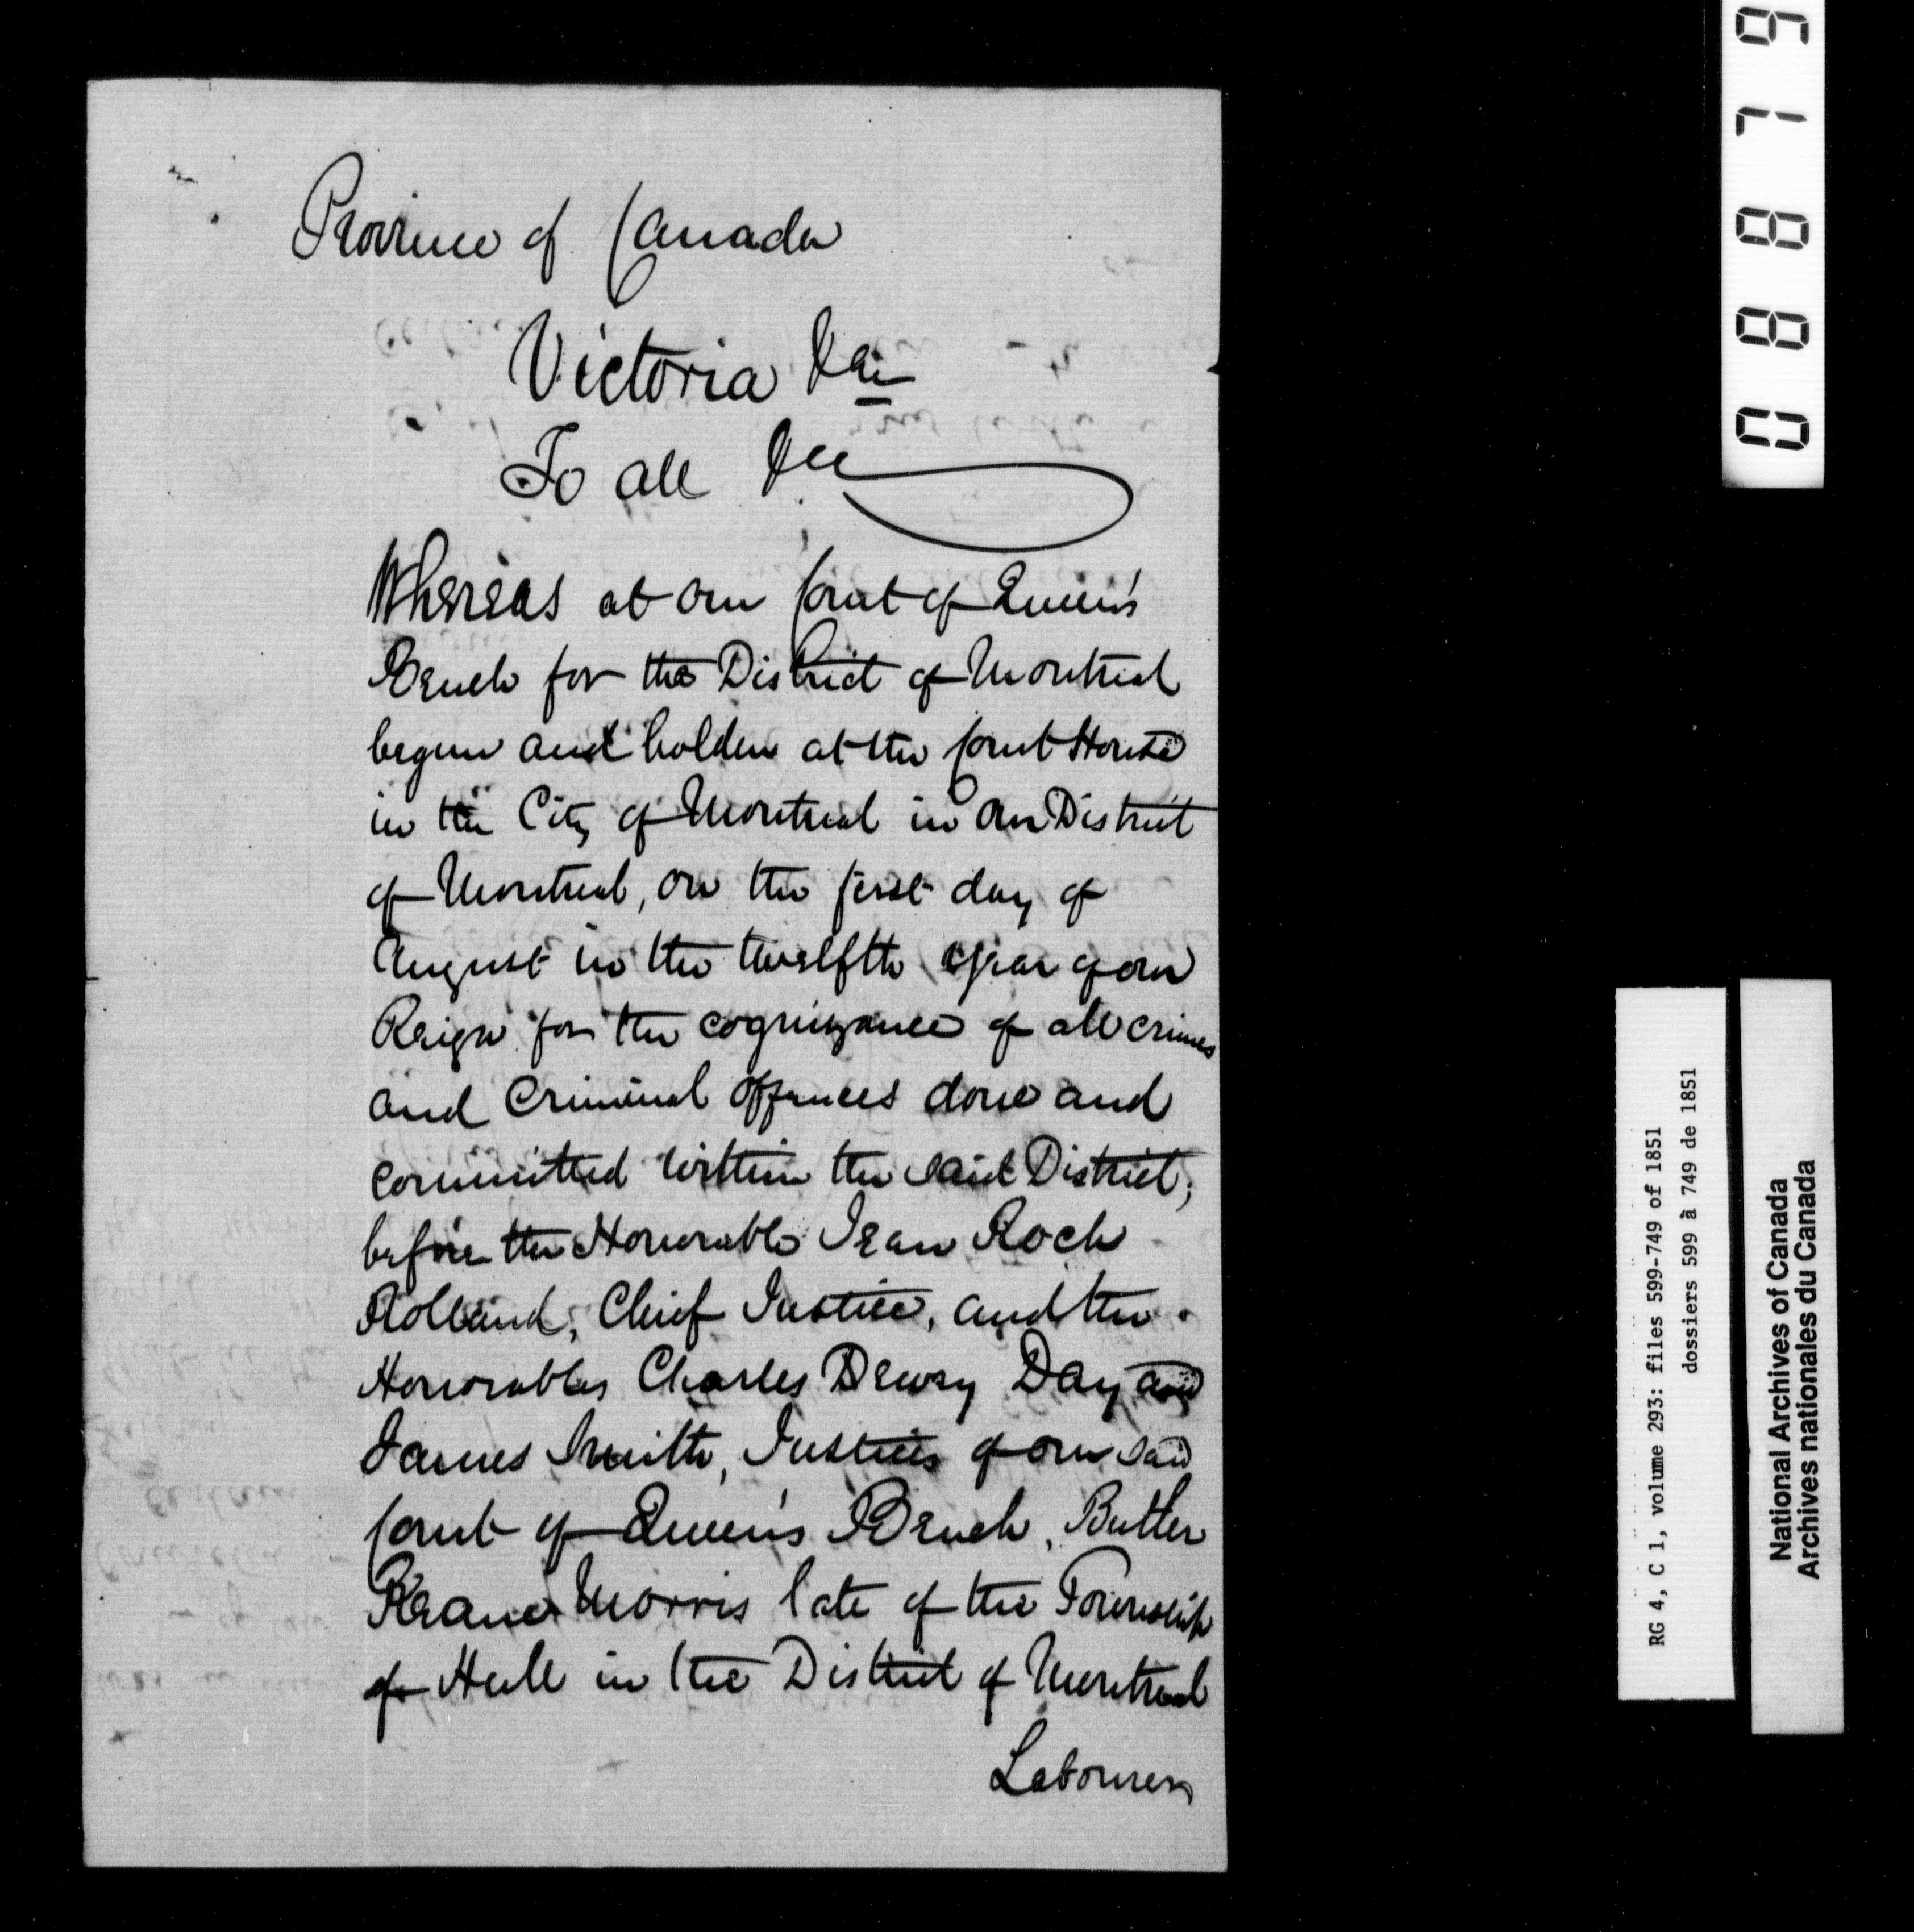 Province of Canada
Victoria &c
To all &c
Whereas at our Court of Queen's
Bench for the District of Montreal
begun and holden at the Court House
in the City of Montreal in our District
of Montreal, on the first day of
August in the twelfth year of our
Reign for the cognizance of all crimes
and Criminal offences done and
committed within the said District,
before the Honorable Jean Roch
Rolland, Chief Justice, and the
Honorables Charles Dewey Day and
James Smith, Justices of our said
Court of Queen's Bench, Butler
Morris late of the Township
of Hull in the District of Montreal
Labourer
088879
RG 4, C 1, volume 293: files 599-749 of 1851
dossiers 599 à 749 de 1851
National Archives of Canada
Archives nationales du Canada